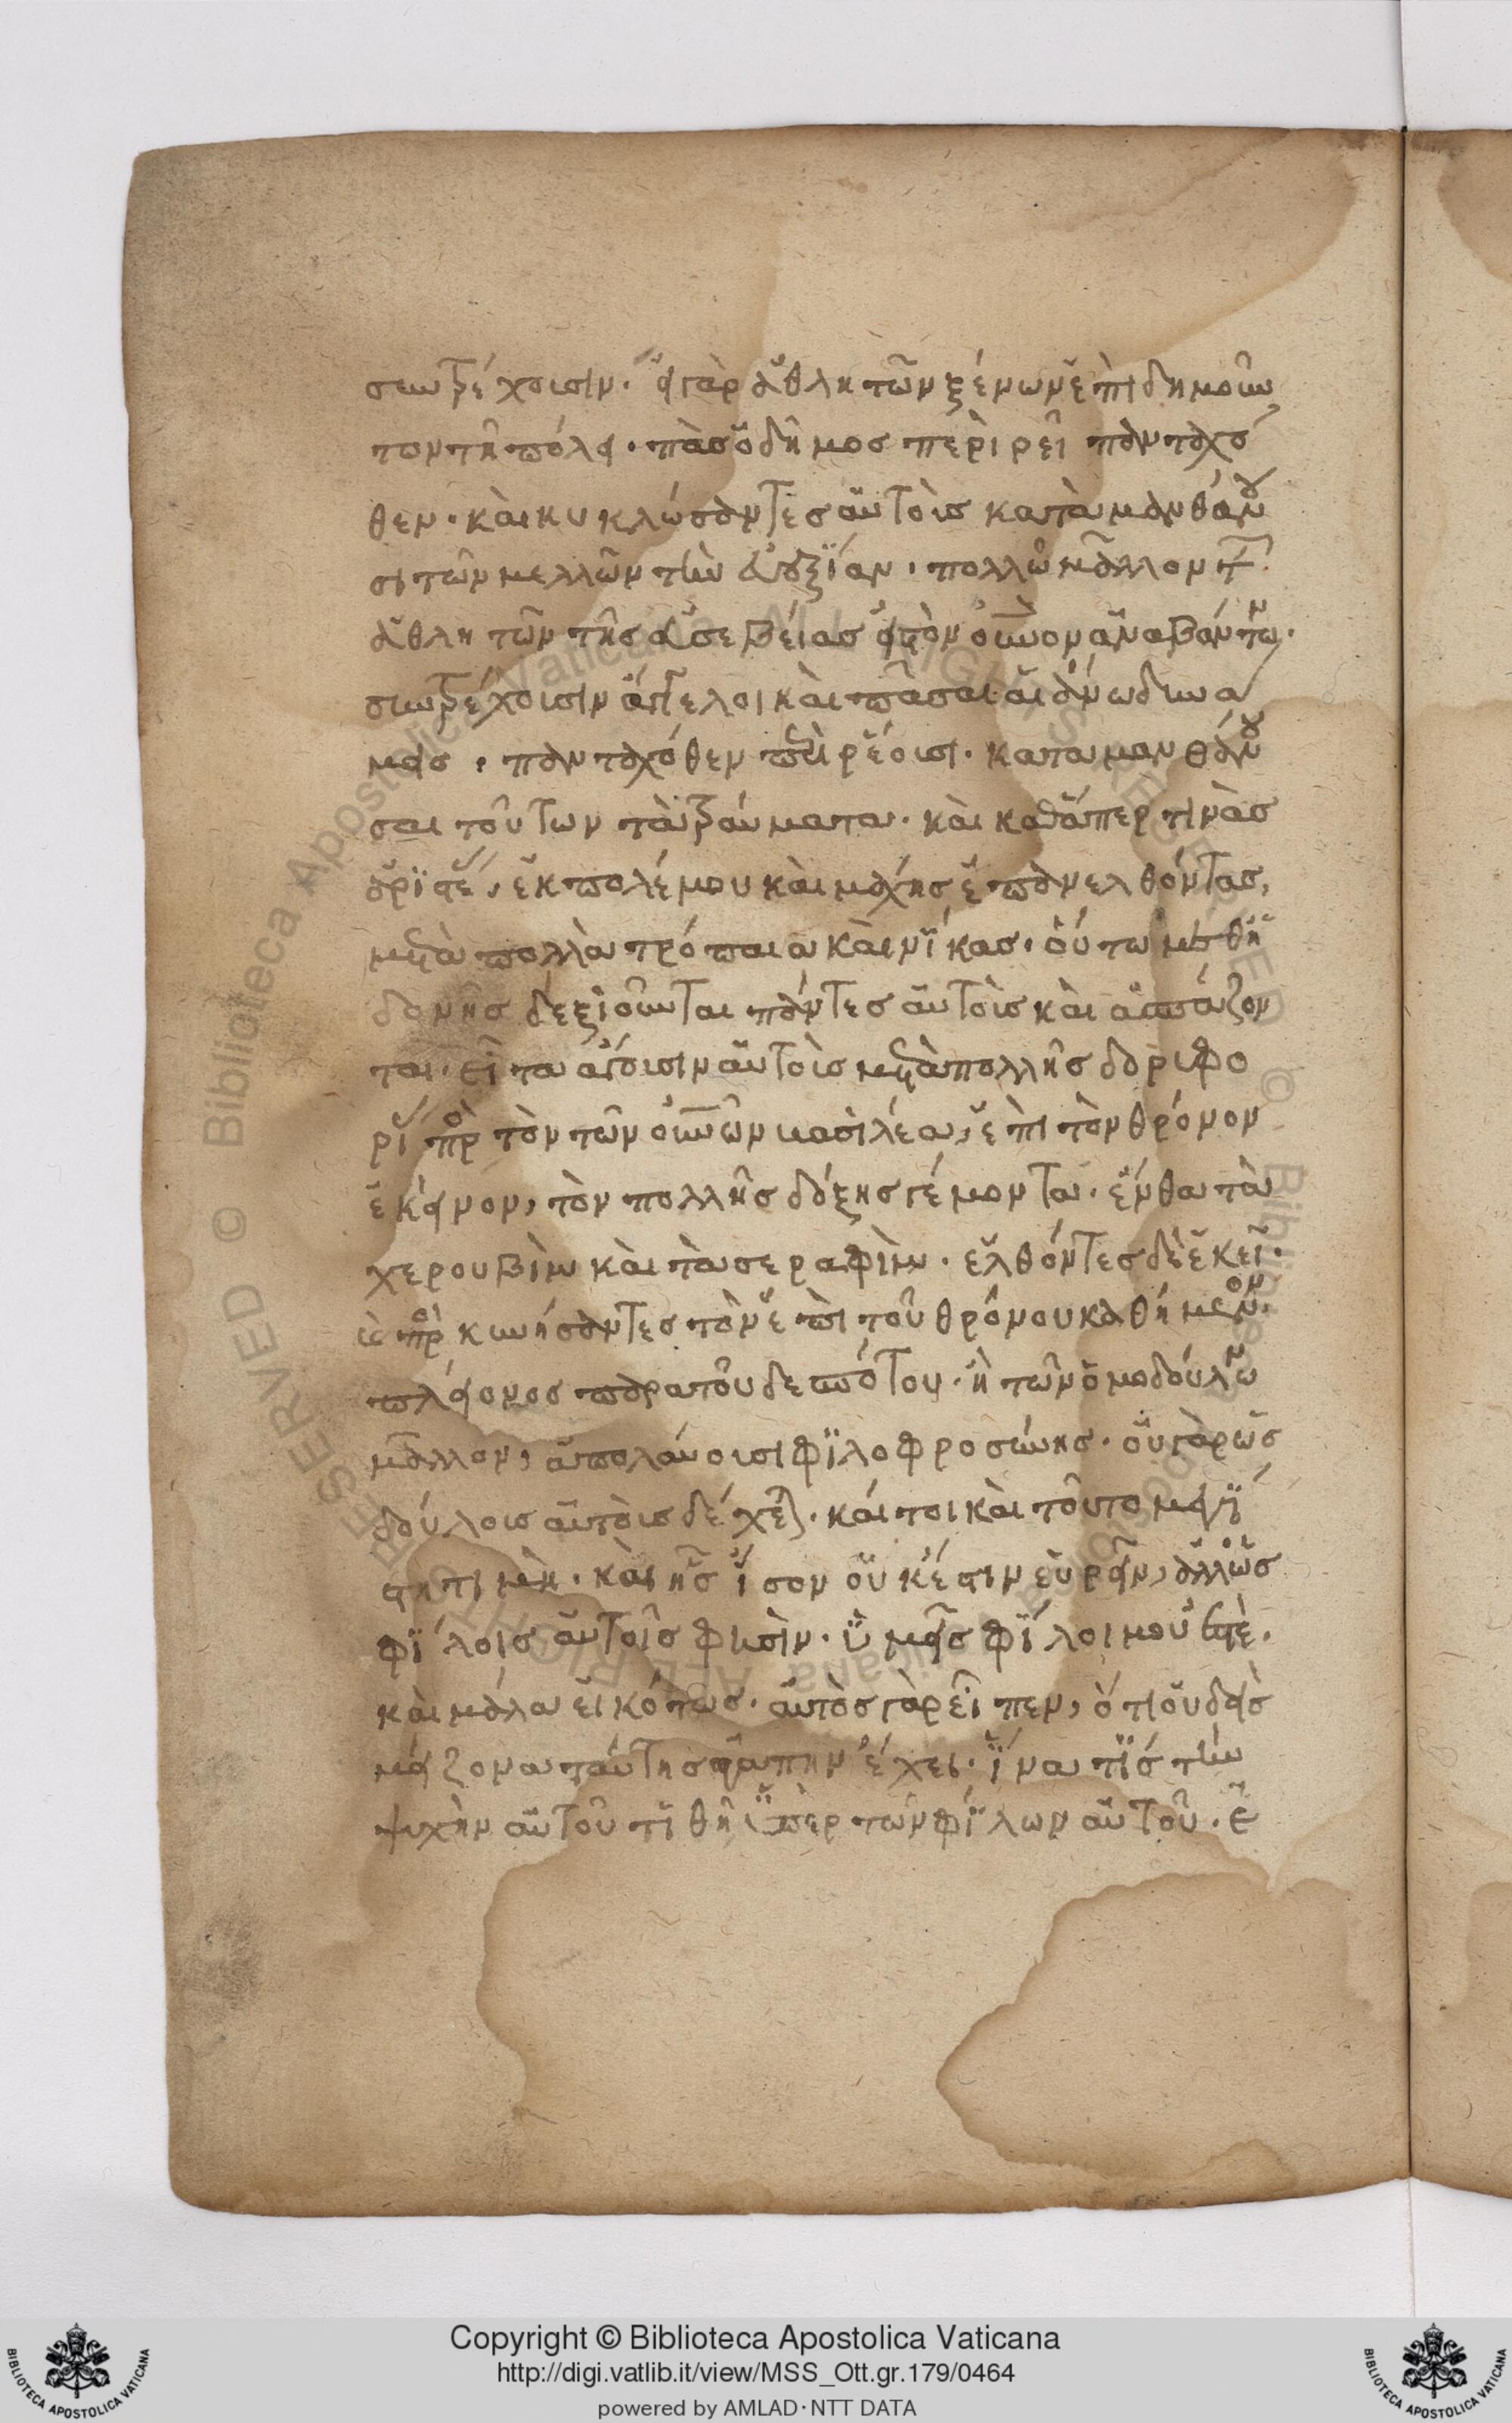 σεωτρέχουσιν. εἰ γὰρ ἀθλητῶν ξένων ἐπιδημούν
των τῇ πόλει. πᾶς ὁ δῆμος περιρεῖ πανταχό
θεν. καὶ κυκλώσαντες αὐτοὺς καταμανθάνου
σι τῶν μελῶν τὴν εὐεξίαν. πολλῷ μᾶλλον τῶν
ἀθλητῶν τῆς εὐσεβείας εἰς τὸν οὐνον ἀναβάντων.
συντρέχουσιν ἄγγελοι καὶ πᾶσαι αἱ ἄνω δυνά
μεις. πανταχόθεν περιρέουσι. καταμανθάνου
σαι τούτων τὰ τραύματα. καὶ καθάπερ τινὰς
ἀριστεῖς, ἐκ πολέμου καὶ μάχης ἐπανελθόντας,
μετὰ πολλὰ τρόπαια καὶ νίκας. οὕτω μεθ ἡ
δονῆς δεξιοῦνται πάντες αὐτοὺς καὶ ἀσπάζον
ται. εἶτα ἄγουσιν αὐτοὺς μετὰ πολλῆς δορυφο
ρίας πρὸς τὸν τῶν οὐνῶν βασιλέα, ἐπὶ τὸν θρόνον
ἐκεῖνον, τὸν πολλῆς δόξης γέμοντα. ἔνθα τὰ
χερουβὶμ καὶ τὰ σεραφίμ. ἐλθόντες δὲ ἐκεῖ.
καὶ προσκυνήσαντες τὸν ἐπὶ τοῦ θρόνου καθήμενον.
πλείονος παρὰ τοῦ δεσπότου. ἢ τῶν ὁμοδούλων
μᾶλλον, ἀπολαύουσι φιλοφροσύνης. οὐ γὰρ ὡς
δούλους αὐτοὺς δέχεται. καίτοι καὶ τοῦτο μεγί
στη τιμὴ. καὶ ἧς ἴσον οὐκ ἔστιν εὑρεῖν, ἀλλ ὡς
φίλοις αὐτοῖς φησὶν. ὑμεῖς φίλοι μού ἐστὲ.
καὶ μάλα εἰκότως. αὐτὸς γὰρ εἶπεν, ὅτι οὐδεὶς
μείζονα ταύτης ἀγάπην ἔχει. ἵνα τίς τὴν
ψυχὴν αὐτοῦ τιθῆ ὑπὲρ τῶν φίλων αὐτοῦ. ἐ
Copyright © Biblioteca Apostolica Vaticana
http://digi.vatlib.it/view/MSS_Ott.gr.179/0464
powered by AMLAD·NTT DATA